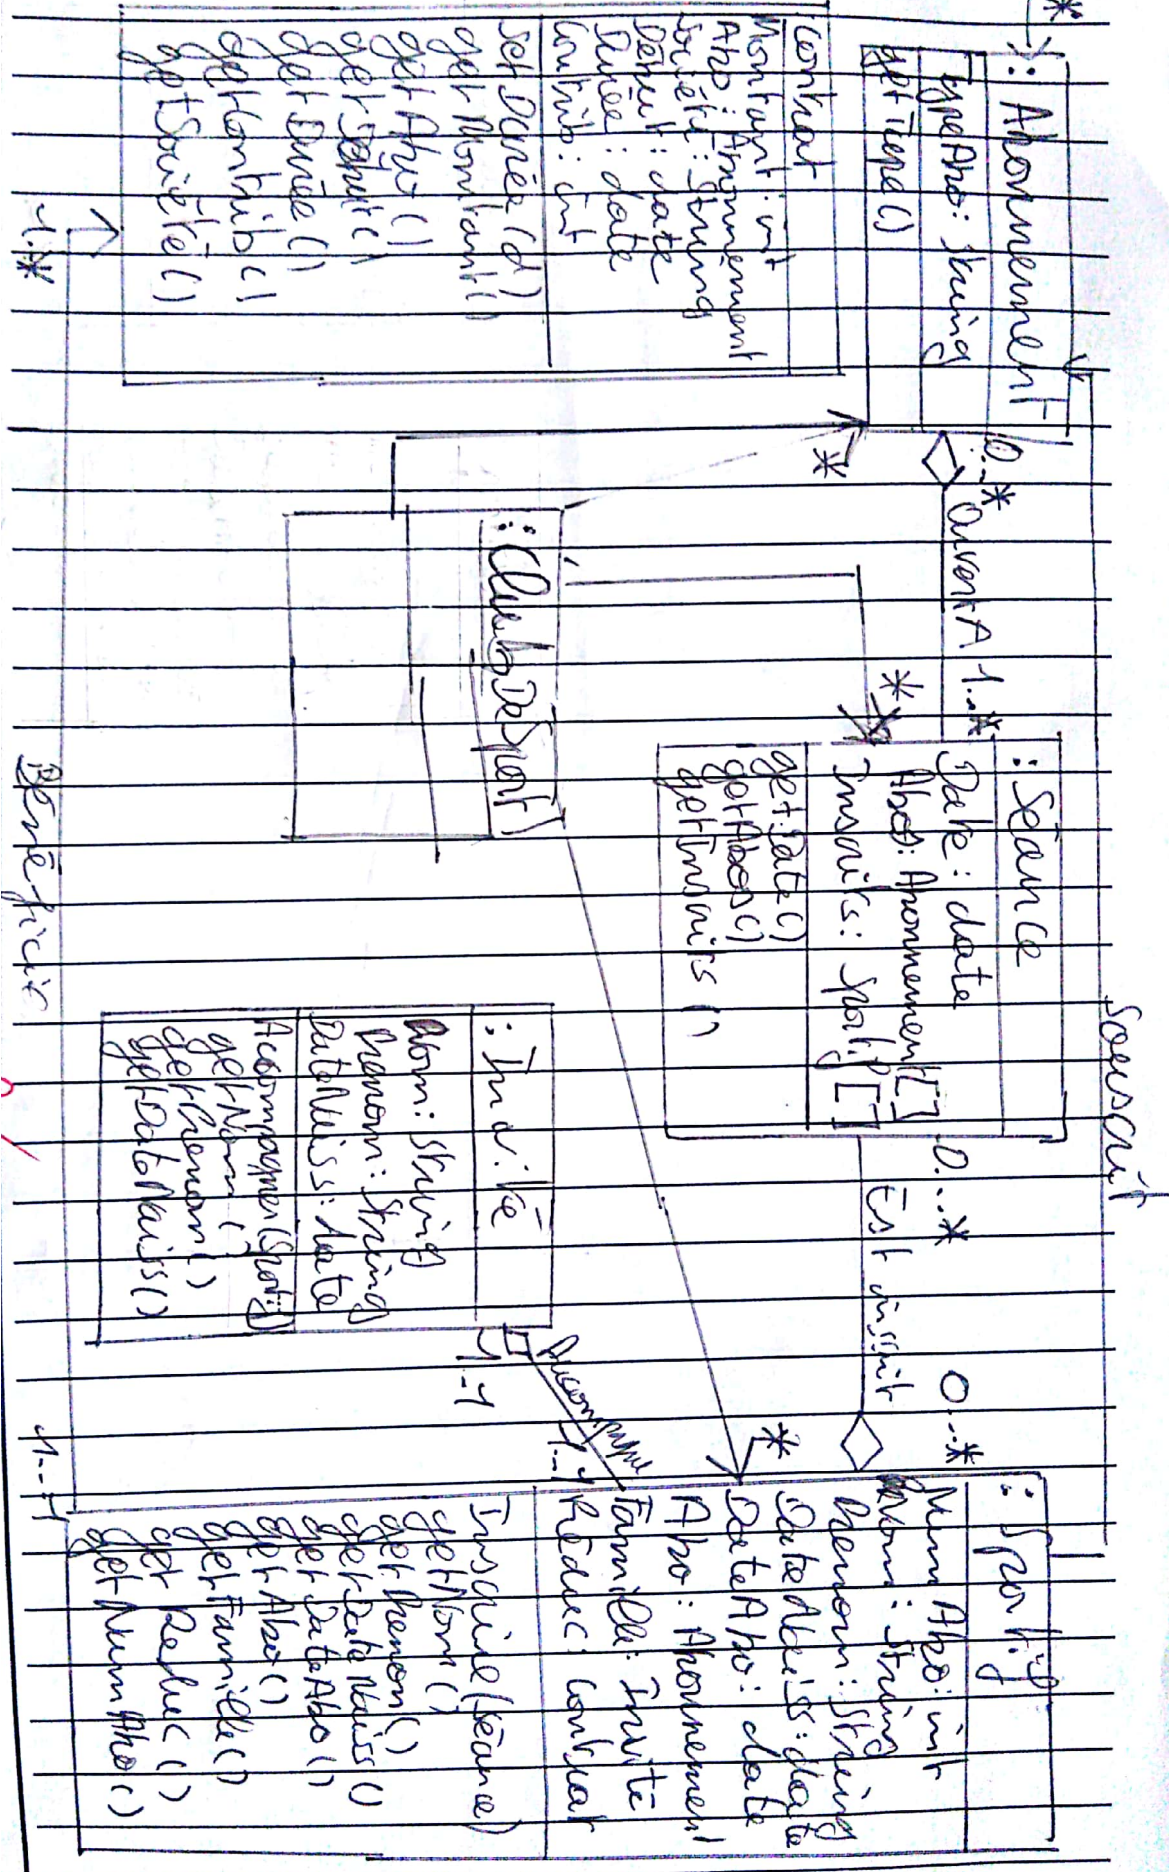 *
: Abonnement
TypeAbo: String
getType()
Contrat
Montant: int
Abo: Abonnement
Société: String
Début: date
Durée: date
Contrib: int
setDurée(d)
getMontant()
getAbo()
getDébut()
getDurée()
getContrib()
getSociété()
1..*
0..*
OuvertA
1..*
*
: ClubDeSport
*
: Séance
Date: date
Abos: Abonnement[]
Inscrits: Sportif[]
getDate()
getAbos()
getInscrits()
Souscrit
0..*
Est inscrit
0..*
Bénéficie
: Invité
Nom: String
Prenom: String
DateNaiss: date
Accompagner(Sportif)
getNom()
getPrenom()
getDateNaiss()
1..1
Accompagne
1..1
*
1..1
: Sportif
NumAbo: int
Nom: String
Prenom: String
DateNaiss: date
DateAbo: date
Abo: Abonnement
Famille: Invité
Réduc: Contrat
Inscrire(Séance)
getNom()
getPrenom()
getDateNaiss()
getDateAbo()
getAbo()
getFamille()
getReduc()
getNumAbo()